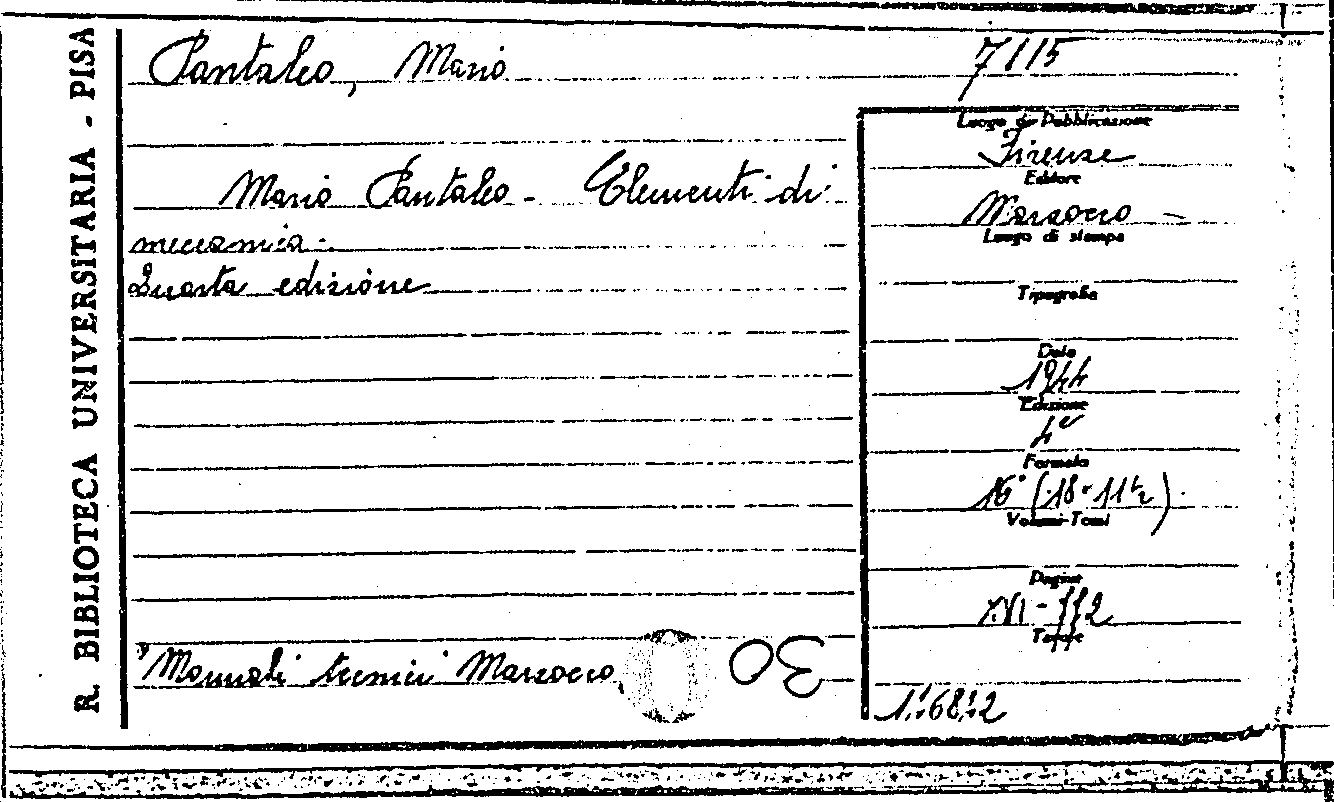 R. BIBLIOTECA UNIVERSITARIA - PISA
Pantaleo, Mario
7115
Mario Pantaleo - Elementi di
meccanica.
Quarta edizione
"Manuali tecnici Marzocco
30
Luogo di Pubblicazione
Firenze
Editore
Marzocco
Luogo di stampa
Tipografia
Data
1944
Edizione
4ª
Formato
16° (18 × 11½).
Volumi-Tomi
Pagine
XVI-
Tavole